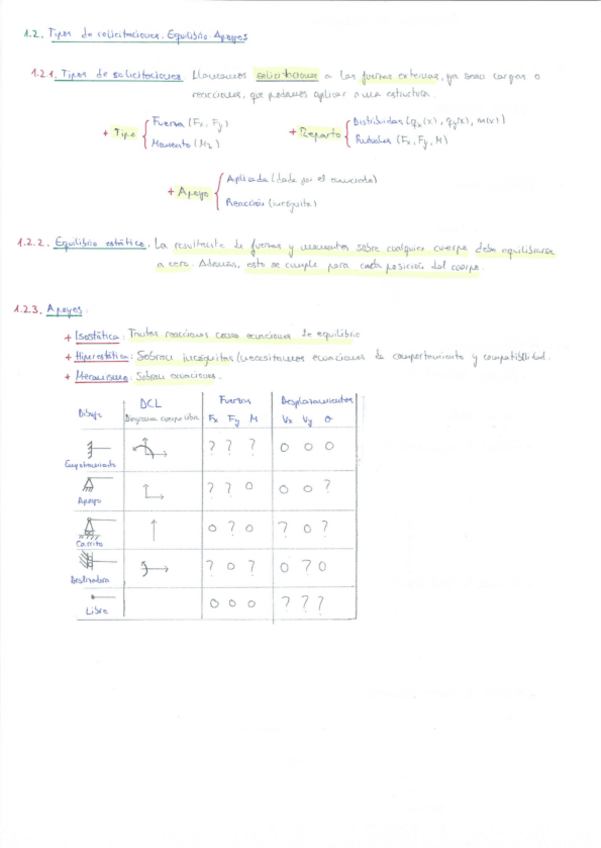 1.2. Tipos de solicitaciones. Equilibrio. Apoyos
1.2.1. Tipos de solicitaciones. Llamamos solicitaciones a las fuerzas externas, ya sean cargas o
reacciones, que podamos aplicar a una estructura.
+ Tipo { Fuerza (Fx, Fy)
Momento (Mz)
+ Reparto { Distribuidas (qx(x), qy(x), m(x))
Puntuales (Fx, Fy, M)
+ Apoyo { Aplicada (dada por el enunciado)
Reacción (incógnita)
1.2.2. Equilibrio estático. La resultante de fuerzas y momentos sobre cualquier cuerpo debe equilibrarse
a cero. Además, esto se cumple para cada posición del cuerpo.
1.2.3. Apoyos:
+ Isostática: Tantas reacciones como ecuaciones de equilibrio
+ Hiperestática: Sobran incógnitas (necesitamos ecuaciones de comportamiento y compatibilidad.
+ Mecanismo: Sobran ecuaciones.
Dibujo DCL Fuerzas Desplazamientos
Diagrama cuerpo libre Fx Fy M Vx Vy θ
Empotramiento ? ? ? 0 0 0
Apoyo ? ? 0 0 0 ?
Carrito 0 ? 0 ? 0 ?
? 0 ? 0 ? 0
Libre 0 0 0 ? ? ?